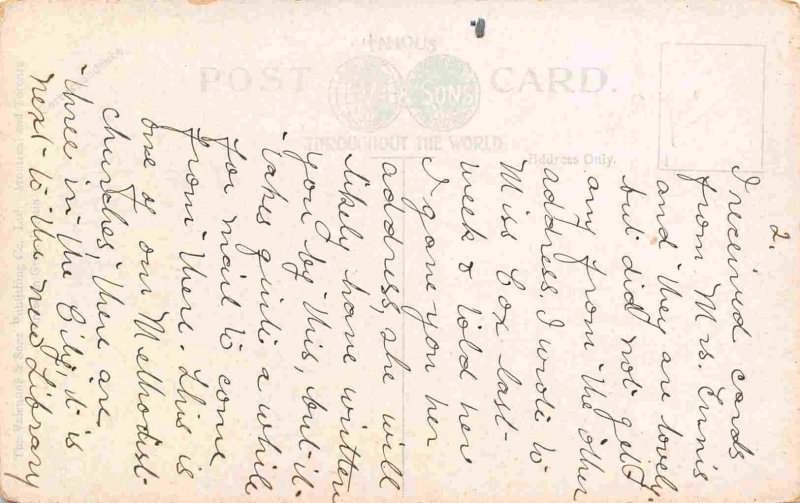 FAMOUS
POST CARD.
& SONS
THROUGHOUT THE WORLD.
Address Only.
2.
I received cards
from Mrs. Ennis
and they are lovely
but did not get
any from the other
address. I wrote to
Miss Cox last
week & told her
I gave you her
address, she will
likely have written
you by this, but it
takes quite a while
for mail to come
from there. This is
one of our Methodist
churches, there are
three in the City, it is
next to the new Library
The Valentine & Sons' Publishing Co., Ltd., Montreal and Toronto